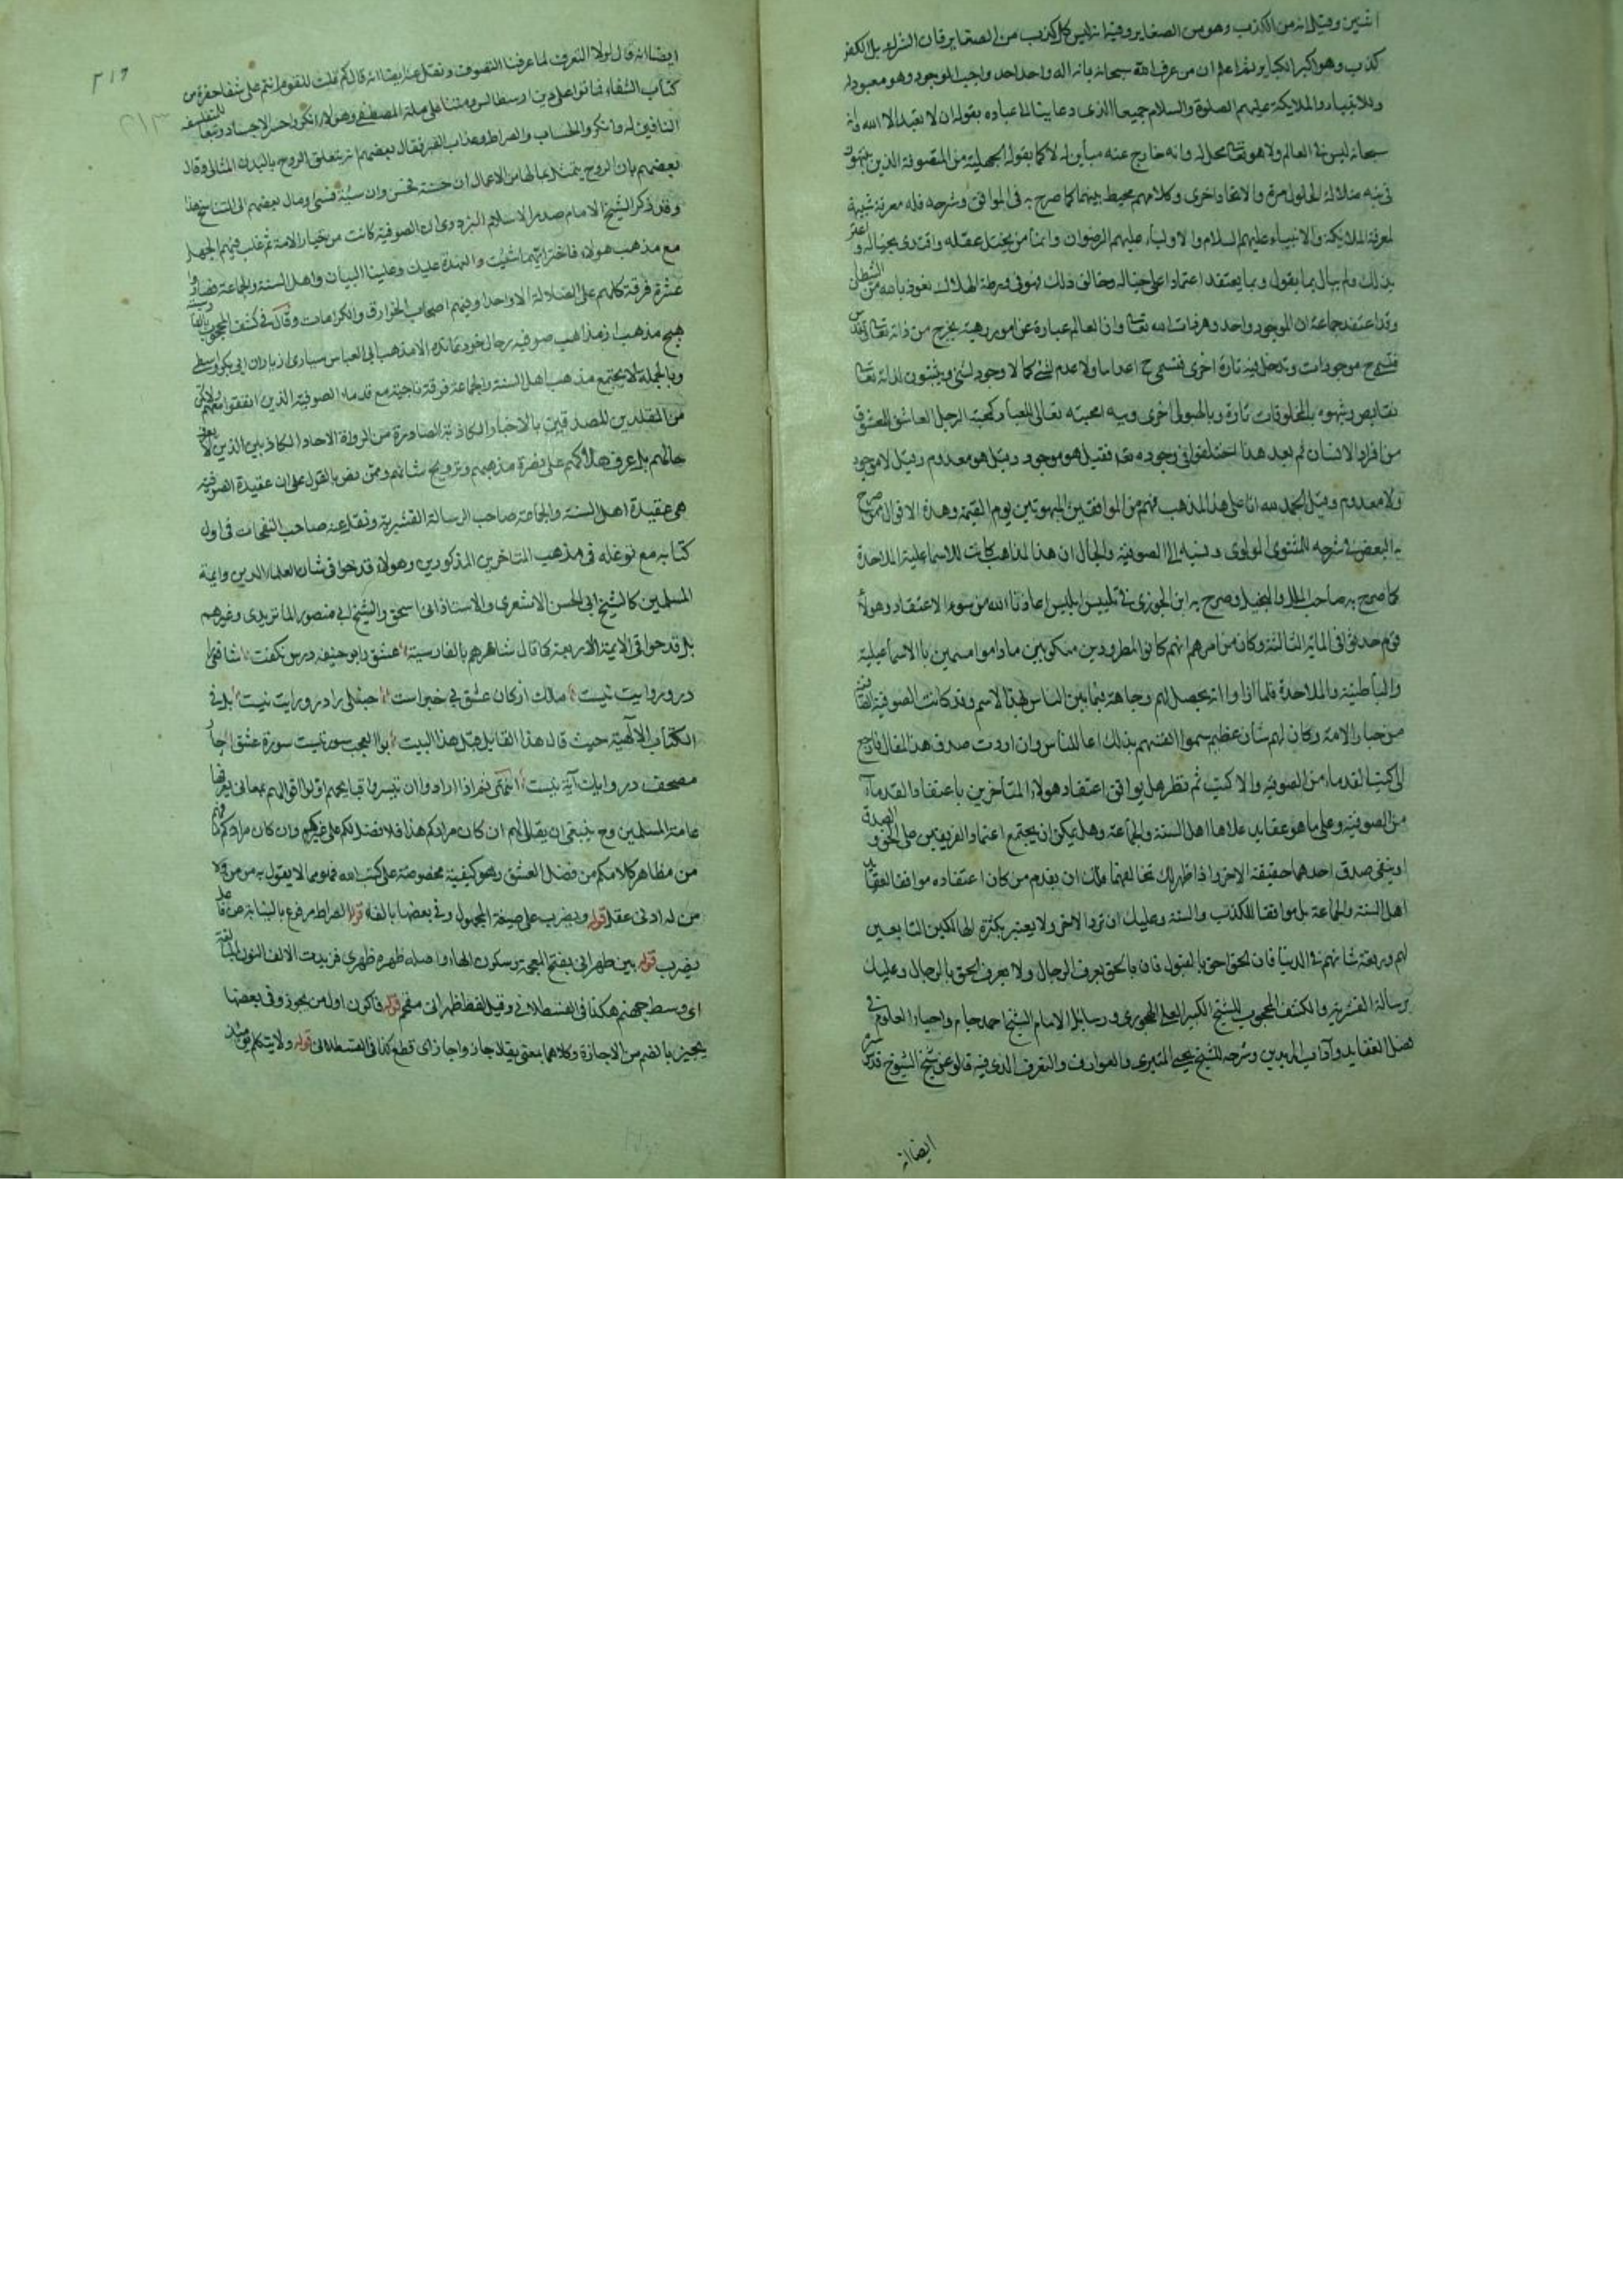 اثنين وقيل انه من الكذب وهو من الصغاير وفيه انه ليس كل كذب من الصغاير فان الشرك بل الكفر
كذب وهو اكبر الكباير ثم اعلم ان من عرف الله سبحانه بانه اله واحد احد واجب الوجود وهو معبود له
وللانبياء والملايكة عليهم الصلوة والسلام جميعا الذى دعا عباده بقوله ان لا تعبد الا الله وانه
سبحانه ليس فى العالم ولا هو تعالى محل له وانه خارج عنه مباين له لا كما يقوله الجهلية من المتصوفة الذين
فى تيه ضلالة الحلول مرة والاتحاد اخرى وكلامهم محيط بينهما كما صرح به فى المواقف وشرحه فله معرفة شبيهة
لمعرفة الملايكة والانبياء عليهم السلام والاولياء عليهم الرضوان واما من يختل عقله واقتدى بخياله واغتر
بذلك ولم يبال بما يقول وبما يعتقد اعتمادا على خياله وخالف ذلك فهو فى ورطة الهلاك نعوذ بالله من الشيطان
وقد اعتقد جماعة ان الموجود واحد وهو ذات الله تعالى وان العالم عبارة عن امور وهمية يخرج من ذاته تعالى
فتسمى ح موجودات وتدخل فيه تارة اخرى فتسمى ح اعداما ولا عدم لشئ كما لا وجود لشئ ويثبتون لذاته تعالى
نقايص وشهوة بالمخلوقات تارة وبالهيولى اخرى وفيه امحبته تعالى للعباد كمحبة الرجل العاشق للمعشوق
من افراد الانسان ثم بعد هذا اختلفوا فى وجوده تعالى فقيل هو موجود وقيل هو معدوم وقيل لا موجود
ولا معدوم وقيل الحمد لله انا على هذا المذهب فهم من الموافقين المبهوتين يوم القيمة وهذه الاقوال مما صرح
به البعض فى شرحه للمثنوى المولوى ونسبه الى الصوفية والحال ان هذا المذاهب كانت للاسماعلية الملاحدة
كما صرح به صاحب الملل والنحل وصرح به ابن الجوزى فى تلبيس ابليس اعاذنا الله من سوء الاعتقاد وهولاء
قوم حدثوا فى المائة الثالثة وكان من امرهم انهم كانوا المطرودين منكوبين ماداموا مسمين بالاسماعيلية
والباطنية والملاحدة فلما ارادوا انه يحصل لهم وجاهة فيما بين الناس بهذا الاسم وقد كانت الصوفية
من خيار الامة وكان لهم شان عظيم سموا انفسهم بذلك اعا للناس وان اردت صدق هذا المقال فارجع
الى كتب القدماء من الصوفية والا كتب ثم نظر هل يوافق اعتقاد هولاء المتأخرين باعتقاد القدماء
من الصوفية وعلى ما هو عقايد علاها اهل السنة والجماعة وهل يمكن ان يجتمع اعتماد الفريقين على الحق والصدق
او ينفى صدق احدهما حقيقة الاخر واذا ظهر لك تخالفهما فلك ان يقدم من كان اعتقاده موافقا لعقايد
اهل السنة والجماعة بل موافقا للكتب والسنة وعليك ان ترد الاخر ولا يعتبر بكثرة الهالكين التابعين
لهم ورفعة شانهم فى الدنيا فان الحق احق بالقبول فان بالحق يعرف الرجال ولا يعرف الحق بالرجال وعليك
برسالة القشيرية والكشف المحجوب للشيخ الكبير العلى الهجويرى ورسايل الامام الشيخ احمد جام واحياء العلوم فى
فصل العقايد وآداب المريدين وشرحه للشيخ يحيى المنيرى والعوارف والتعرف الذى فيه قالو عن شيخ الشيوخ قدس سره
ايضا انه
٣١٦
٢١٣
ايضا انه قال لولا التعرف لما عرفنا التصوف ونقل عنه ايضا انه قال كم قلت للقوم انتم على شفا حفرة من
كتاب الشفاء فماتوا على دين ارسطاليس ومتنا على ملة المصطفى وهولاء انكروا حشر الاجساد وتبعا للمتفلسفة
النافين له وانكروا الحساب والصراط وعذاب القبر فقال بعضهم انه يتعلق الروح بالبدن المثالى وقال
بعضهم بان الروح يتمثل بمالها من الاعمال ان حسنة حسن وان سيئة فسئ ومال بعضهم الى التناسخ هذا
وقد ذكر الشيخ الامام صدر الاسلام البزدوى ان الصوفية كانت من خيار الامة ثم غلب فيهم الجهل
مع مذهب هولاء فاختر ايهما شئت والعهدة عليك وعلينا البيان واهل السنة والجماعة
عشرة فرقة كلهم على الضلالة الا واحدا وفيهم اصحاب الخوارق والكرامات وقال فى كشف المحجوب بالفارسية
هيچ مذهب از مذاهب صوفيه بر حال خود نمانده الا مذهب ابى العباس سيارى از ياران ابى بكر واسطى
وبالجملة لا يجتمع مذهب اهل السنة والجماعة فرقة ناجية مع قدماء الصوفية الذين اتفقوا معهم
من المقلدين المصدقين بالاخبار الكاذبة الصادرة من الرواة الاحاد الكاذبين الذين لا يعرف
حالهم بل عرف هلاكهم على نصرة مذهبهم وترويج شانهم وممن نص بالقول على ان عقيدة الصوفية
هى عقيدة اهل السنة والجماعة صاحب الرسالة القشيرية ونقل عنه صاحب النفحات فى اول
كتابه مع توغله فى مذهب المتاخرين المذكورين وهولاء قدحوا فى شان العلماء الدين وايمة
المسلمين كالشيخ ابى الحسن الاشعرى والاستاذ ابى اسحق والشيخ ابى منصور الماتريدى وغيرهم
بل قدحوا فى الايمة الاربعة كما قال شاهرهم بالفارسية عشق را بو حنيفه درس نكفت شافعى
در و روايت نيست مالك از كان عشق بى خبر است حنبلى را در و رايت نيست بل فى
الكتاب الآلهية حيث قال هذا القايل قبل هذا البيت بو العجب سورتيست سورة عشق چار
مصحف در و ايك آية نيست انتهى ثم اذا ارادوا ان تيسروا قبايحهم اولوا اقوالهم بمعانى يعرفها
عامة المسلمين وح ينبغى ان يقال لهم ان كان مرادكم هذا فلا فضل لكم على غيركم وان كان مرادكم ما فهم
من مظاهر كلامكم من فضل العشق وهو كيفية مخصوصة على كتب الله فهو مما لا يقول به من من ولا
من له ادنى عقل قوله ويضرب على صيغة المجهول وفى بعضها بالفه قوله الصراط مرفوع بالنيابة عن فاعل
يضرب قوله بين ظهرانى بفتح المعجمة وسكون الهاء واصله ظهره ظهرى فزيدت الالف النون للمبالغة
اى وسط جهنم هكذا فى القسطلانى وقيل لفظ ظهرانى مقحم قوله فاكون اول من يجوز وفى بعضها
يجيز بالضم من الاجازة وكلاهما بمعنى يقال جاز واجاز اى قطع كذا فى القسطلانى قوله ولا يتكلم يومئذ